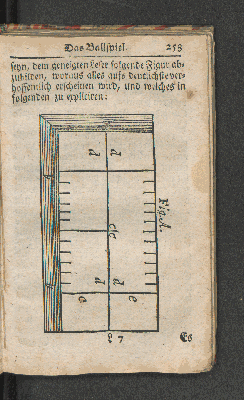 Das Ballspiel. 253
seyn, dem geneigten Leser folgende Figur ab-
zubilden, woraus alles aufs deutlichste ver-
hoffentlich erscheinen wird, und welches in
folgenden zu expliciren:
d d
Figura.
c c
d
e e
Es